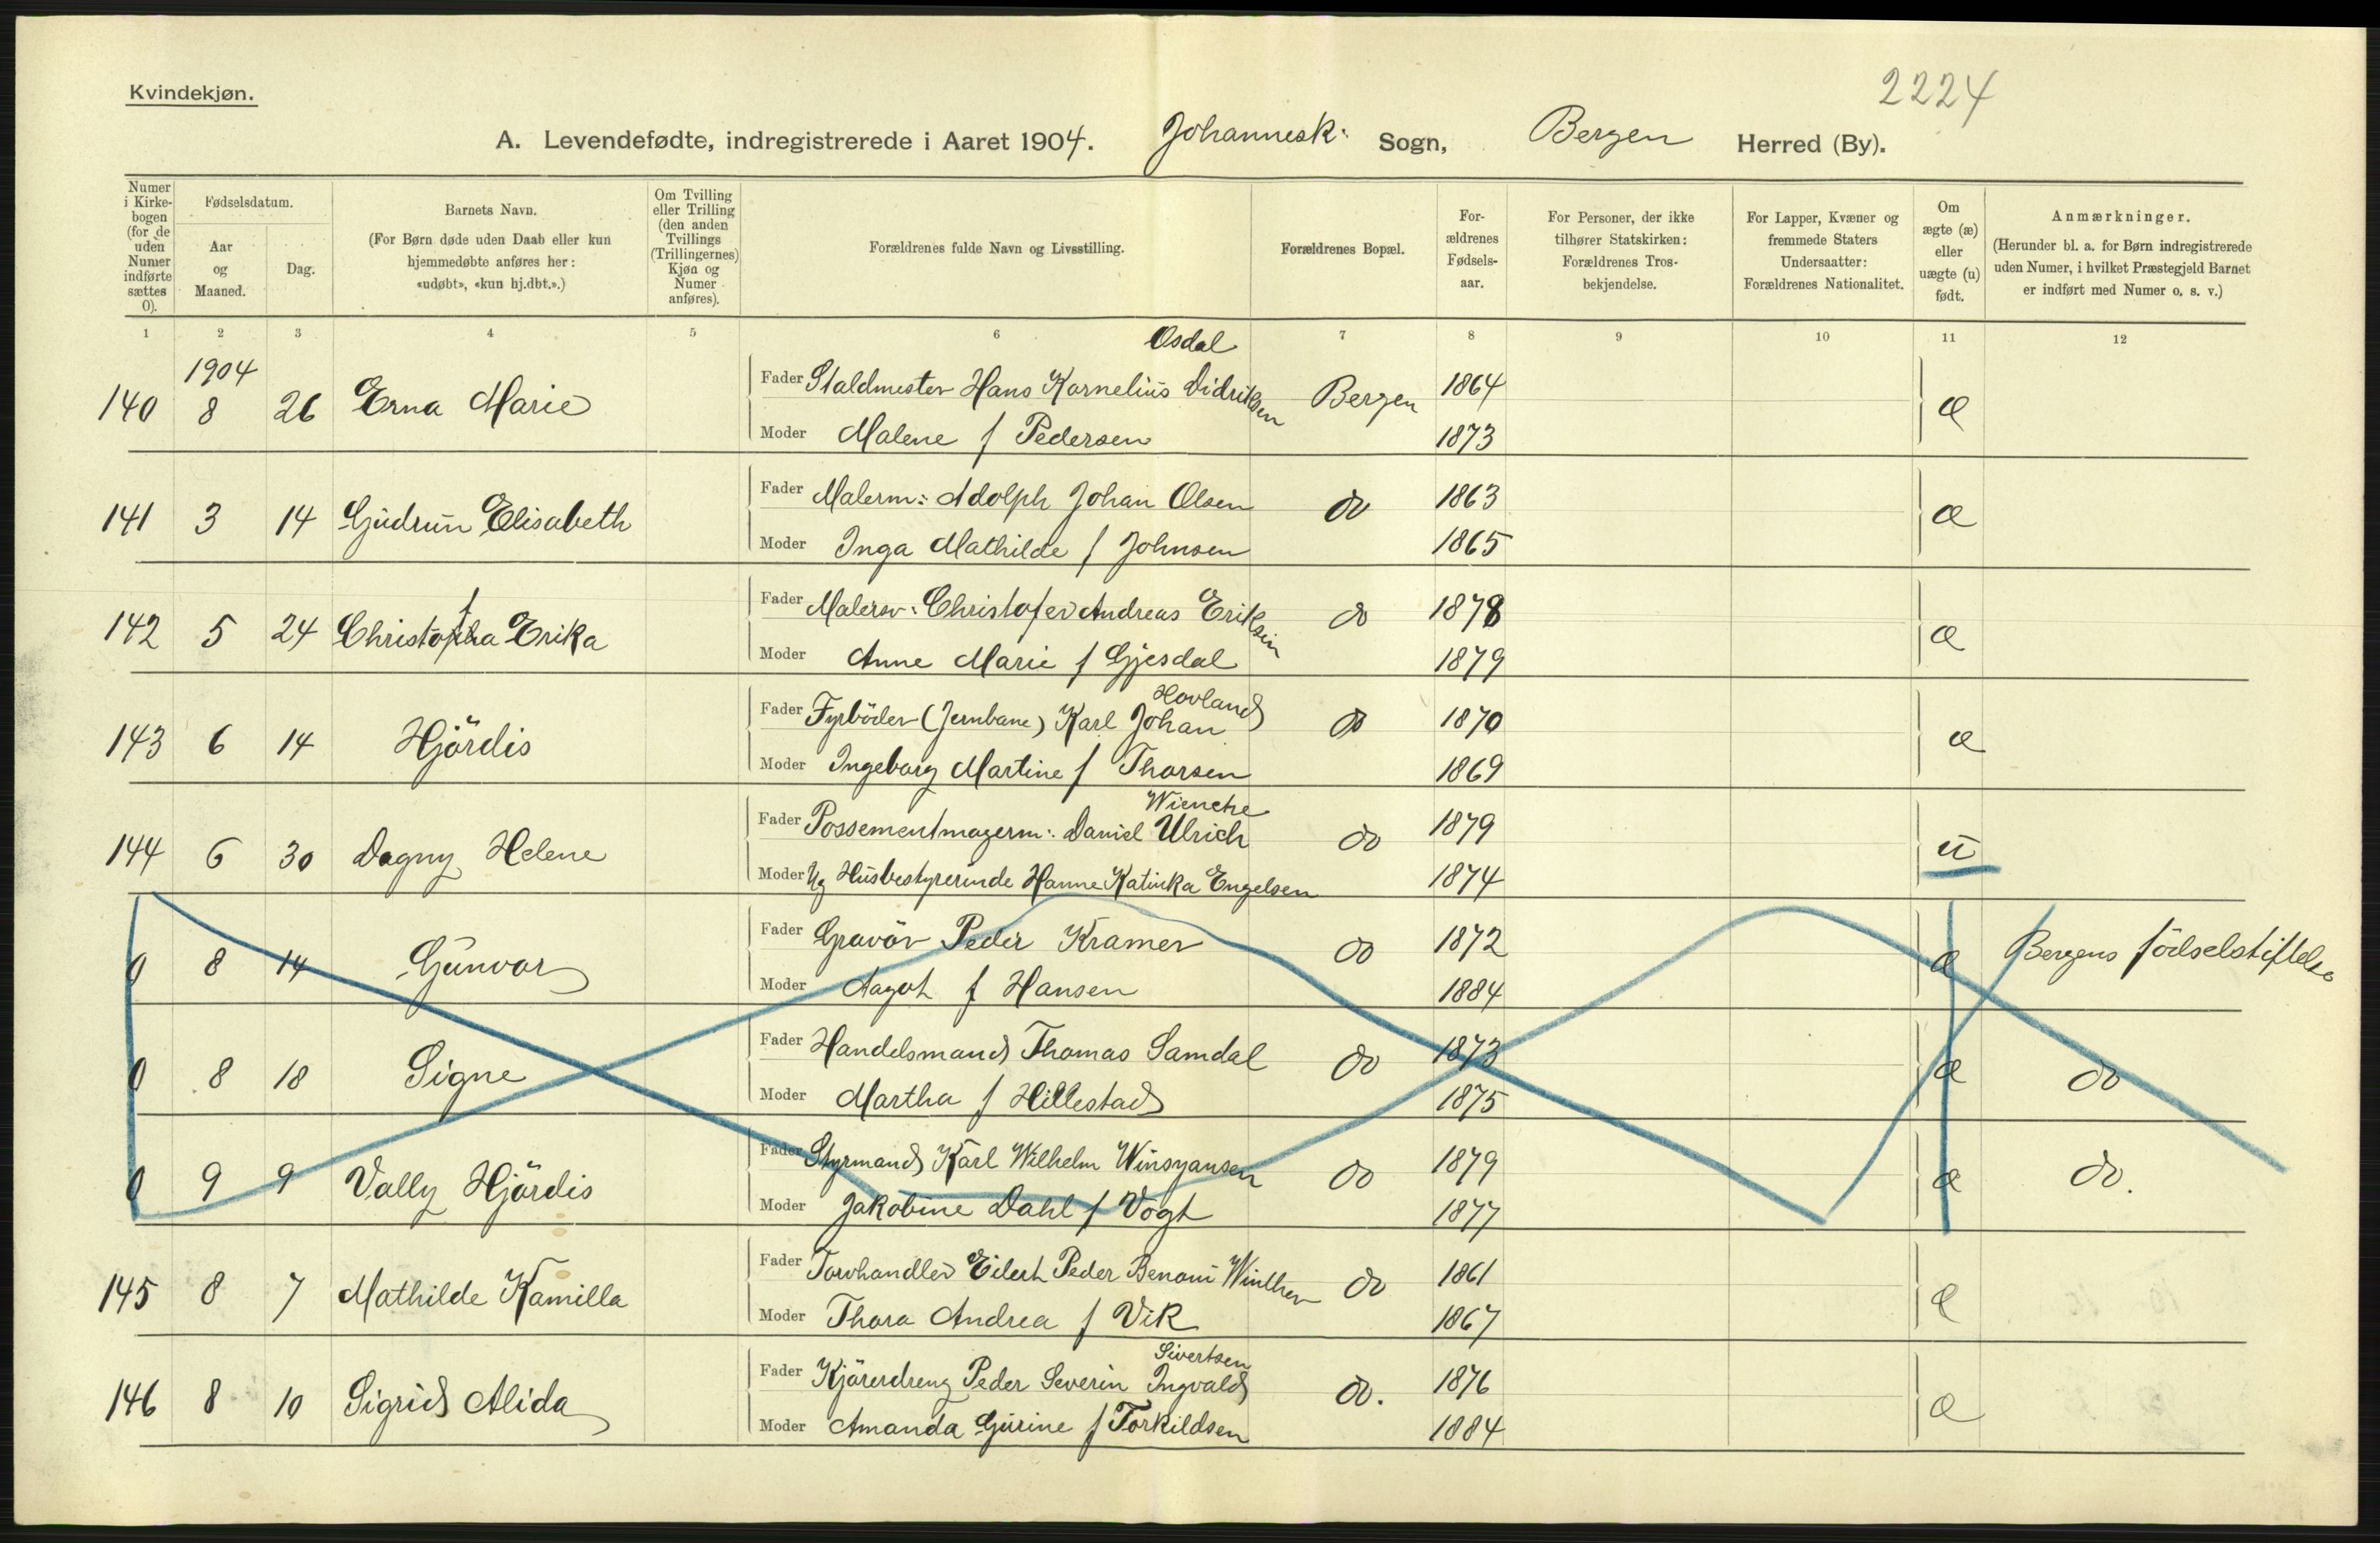 Kvindekjøn.
2224
A. Levendefødte, indregistrerede i Aaret 1904. Johannesk: Sogn, Bergen Herred (By).
Numer i Kirkebogen (for de uden Numer indførte sættes 0).
Fødselsdatum.
Aar og Maaned.
Dag.
Barnets Navn.
(For Børn døde uden Daab eller kun hjemmedøbte anføres her: «udøbt», «kun hj.dbt.».)
Om Tvilling eller Trilling (den anden Tvillings (Trillingernes) Kjøn og Numer anføres).
Forældrenes fulde Navn og Livsstilling.
Forældrenes Bopæl.
For-ældrenes Fødsels-aar.
For Personer, der ikke tilhører Statskirken: Forældrenes Tros-bekjendelse.
For Lapper, Kvæner og fremmede Staters Undersaatter: Forældrenes Nationalitet.
Om ægte (æ) eller uægte (u) født.
Anmærkninger.
(Herunder bl. a. for Børn indregistrerede uden Numer, i hvilket Præstegjeld Barnet er indført med Numer o. s. v.)
1 2 3 4 5 6 7 8 9 10 11 12
1904
Osdal
140 8 26 Erna Marie Fader Staldmester Hans Kornelius Didriksen Bergen 1864 æ
Moder Malene f Pedersen 1873
141 3 14 Gudrun Elisabeth Fader Malerm: Adolph Johan Olsen do 1863 æ
Moder Inga Mathilde f Johnsen 1865
142 5 24 Christofa Erika Fader Malersv: Christofer Andreas Eriksen do 1878 æ
Moder Anne Marie f Gjesdal 1879
Hovland
143 6 14 Hjördis Fader Fyrböder (Jernbane) Karl Johan do 1870 æ
Moder Ingeborg Martine f Thorsen 1869
Wiencke
144 6 30 Dagny Helene Fader Possementmagerm: Daniel Ulrich do 1879 u
Moder Ug Husbestyrerinde Hanne Katinka Engelsen 1874
0 8 14 Gunvor Fader Gravör Peder Kramer do 1872 æ Bergens födselstiftelse
Moder Aagot f Hansen 1884
0 8 18 Signe Fader Handelsmand Thomas Samdal do 1873 æ do
Moder Martha f Hillestad 1875
0 9 9 Vally Hjördis Fader Styrmand Karl Wilhelm do 1879 æ do.
Moder Jakobine Dahl f Vogt 1877
145 8 7 Mathilde Kamilla Fader Torvhandler Eilert Peder Benoni Winther do 1861 æ
Moder Thora Andrea f Vik 1867
Sivertsen
146 8 10 Sigrid Alida Fader Kjöreredreng Peder Severin Ingvald do. 1876 æ
Moder Amanda Gurine f Torkildsen 1884